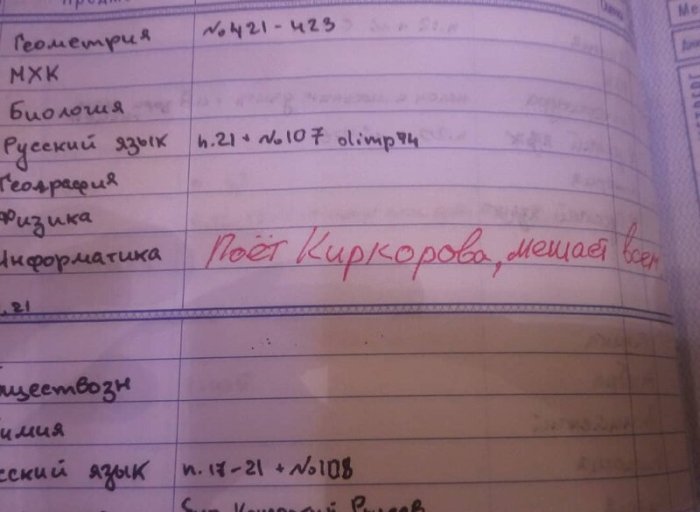 Геометрия №421-423
МХК
Биология
Русский язык п.21 + №107 olimp74
География
Физика
Информатика Поёт Киркорова, мешает всем
.21
ществозн
имия
сский язык п.17-21 + №108